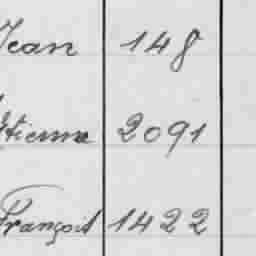 Jean 148
Etienne 2091
François 1422